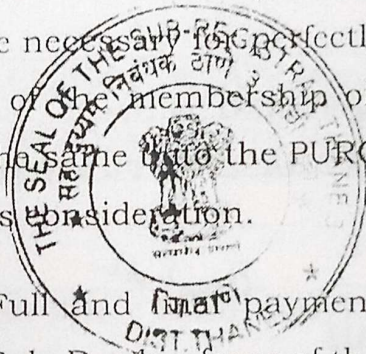 e necessary for perfectl
of the membership o
he same unto the PURC
s consideration.
Full and final paymen
THE SEAL OF THE SUB-REGISTRAR THANE 3
सह दुय्यम निबंधक ठाणे ३
DIST. THANE